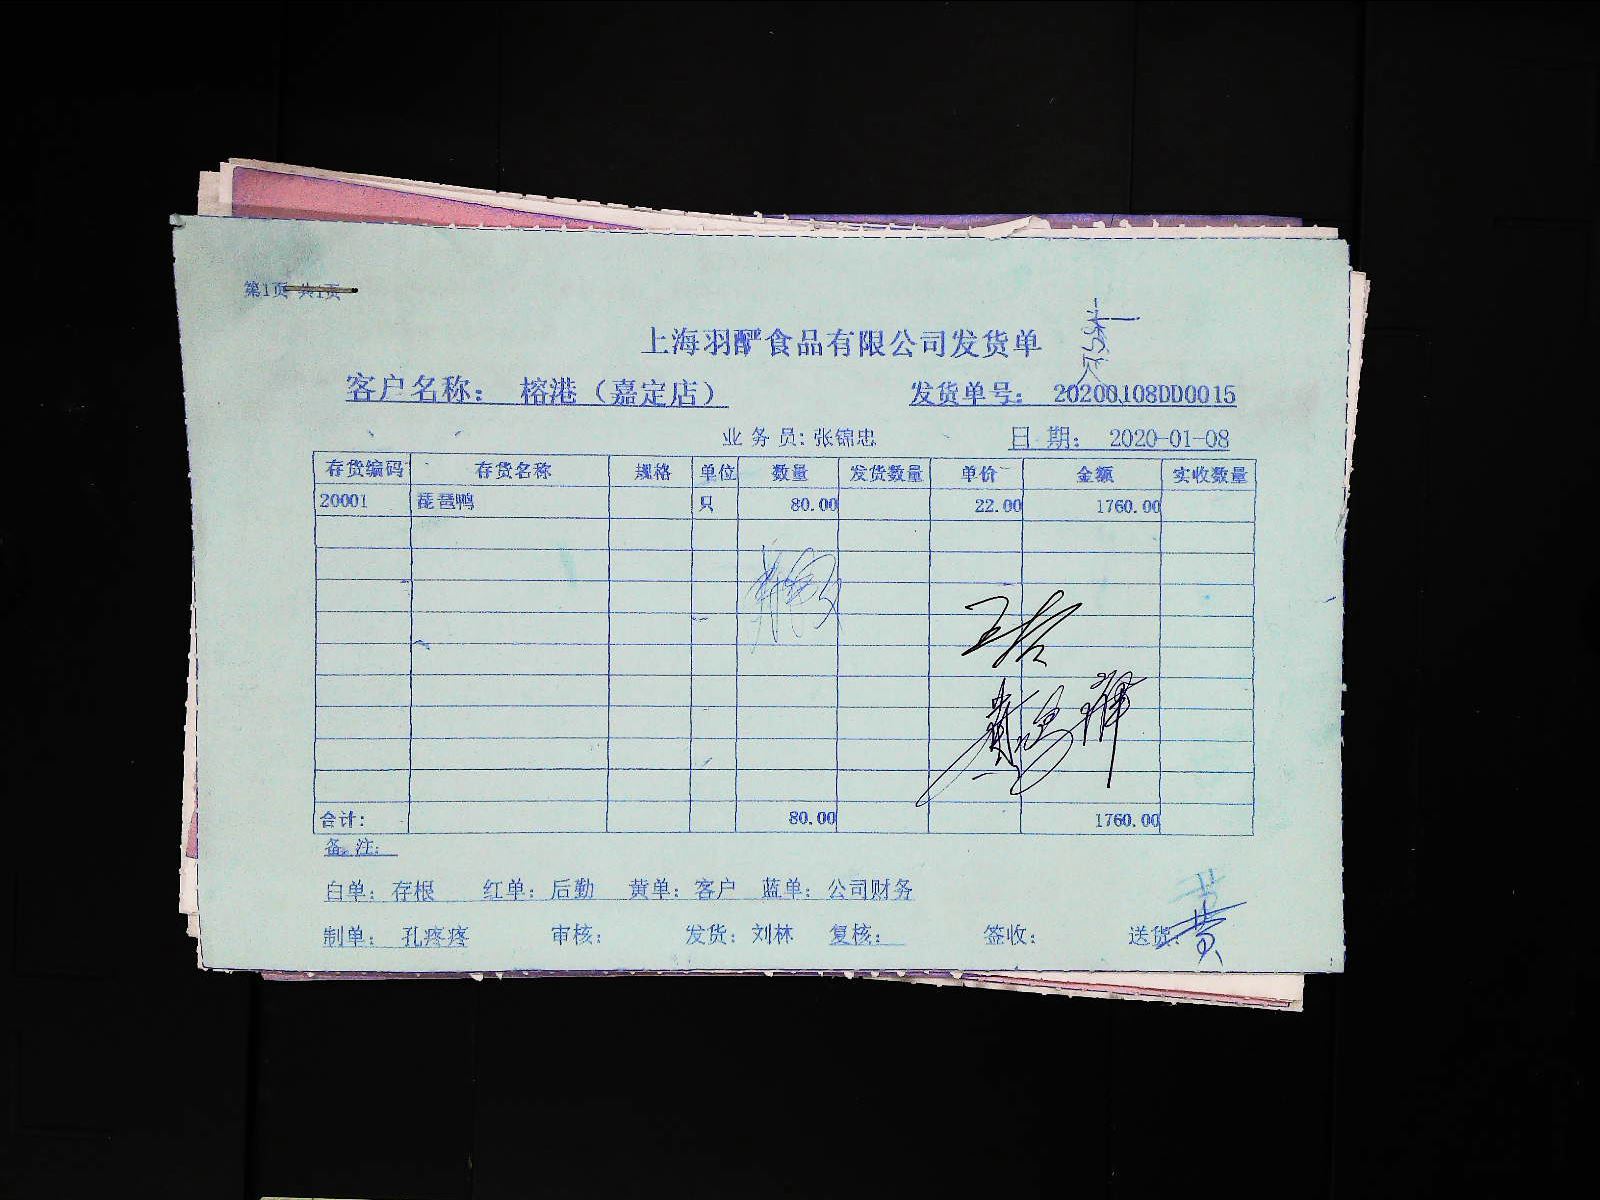 第1页 共1页
上海羽酽食品有限公司发货单
客户名称： 榕港（嘉定店） 发货单号： 20200108DD0015
业务员：张锦忠 日期： 2020-01-08
存货编码 存货名称 规格 单位 数量 发货数量 单价 金额 实收数量
20001 琵琶鸭 只 80.00 22.00 1760.00
合计： 80.00 1760.00
备注：
白单：存根 红单：后勤 黄单：客户 蓝单：公司财务
制单： 孔疼疼 审核： 发货：刘林 复核： 签收： 送货：
黄